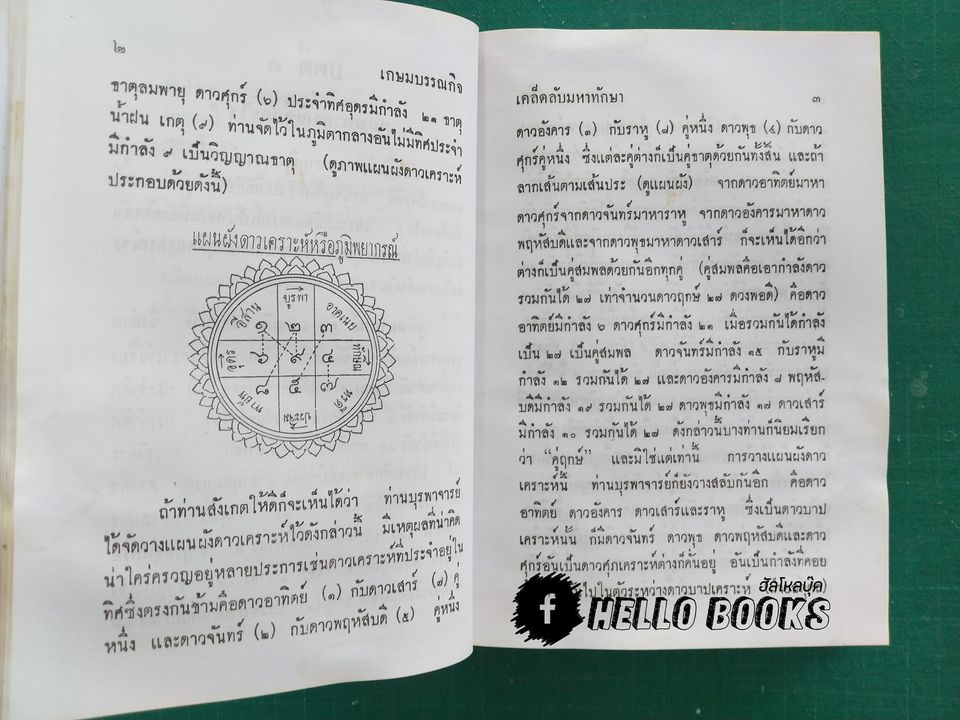 ๒
เกษมบรรณกิจ
ธาตุลมพายุ ดาวศุกร์ (๖) ประจำทิศอุดรมีกำลัง ๒๑ ธาตุ
น้ำฝน เกตุ (๙) ท่านจัดไว้ในภูมิตากลางอันไม่มีทิศประจำ
มีกำลัง ๙ เป็นวิญญาณธาตุ (ดูภาพแผนผังดาวเคราะห์
ประกอบด้วยดังนี้)
แผนผังดาวเคราะห์หรือภูมิพยากรณ์
อีสาน
บูรพา
อาคเนย์
อุดร
ทักษิณ
พายัพ
ประจิม
หรดี
ถ้าท่านสังเกตให้ดีก็จะเห็นได้ว่า ท่านบุรพาจารย์
ได้จัดวางแผนผังดาวเคราะห์ไว้ดังกล่าวนี้ มีเหตุผลที่น่าคิด
น่าใคร่ครวญอยู่หลายประการเช่นดาวเคราะห์ที่ประจำอยู่ใน
ทิศซึ่งตรงกันข้ามคือดาวอาทิตย์ (๑) กับดาวเสาร์ (๗) คู่
หนึ่ง และดาวจันทร์ (๒) กับดาวพฤหัสบดี (๕) คู่หนึ่ง
เคล็ดลับมหาทักษา
๓
ดาวอังคาร (๓) กับราหู (๘) คู่หนึ่ง ดาวพุธ (๔) กับดาว
ศุกร์คู่หนึ่ง ซึ่งแต่ละคู่ต่างก็เป็นคู่ธาตุด้วยกันทั้งสิ้น และถ้า
ลากเส้นตามเส้นประ (ดูแผนผัง) จากดาวอาทิตย์มาหา
ดาวศุกร์จากดาวจันทร์มาหาราหู จากดาวอังคารมาหาดาว
พฤหัสบดีและจากดาวพุธมาหาดาวเสาร์ ก็จะเห็นได้อีกว่า
ต่างก็เป็นคู่สมพลด้วยกันอีกทุกคู่ (คู่สมพลคือเอากำลังดาว
รวมกันได้ ๒๗ เท่าจำนวนดาวฤกษ์ ๒๗ ดวงพอดี) คือดาว
อาทิตย์มีกำลัง ๖ ดาวศุกร์มีกำลัง ๒๑ เมื่อรวมกันได้กำลัง
เป็น ๒๗ เป็นคู่สมพล ดาวจันทร์มีกำลัง ๑๕ กับราหูมี
กำลัง ๑๒ รวมกันได้ ๒๗ และดาวอังคารมีกำลัง ๘ พฤหัส-
บดีมีกำลัง ๑๙ รวมกันได้ ๒๗ ดาวพุธมีกำลัง ๑๗ ดาวเสาร์
มีกำลัง ๑๐ รวมกันได้ ๒๗ ดังกล่าวนี้บางท่านก็นิยมเรียก
ว่า “คู่ฤกษ์” และมิใช่แต่เท่านี้ การวางแผนผังดาว
เคราะห์นี้ ท่านบุรพาจารย์ก็ยังวางสลับกันอีก คือดาว
อาทิตย์ ดาวอังคาร ดาวเสาร์และราหู ซึ่งเป็นดาวบาป
เคราะห์นั้น ก็มีดาวจันทร์ ดาวพุธ ดาวพฤหัสบดีและดาว
ศุกร์อันเป็นดาวศุภเคราะห์ต่างก็คั่นอยู่ อันเป็นกำลังที่คอย
ไปในตัวระหว่างดาวบาปเคราะห์
ฮัลโหลบุ๊ค
f HELLO BOOKS